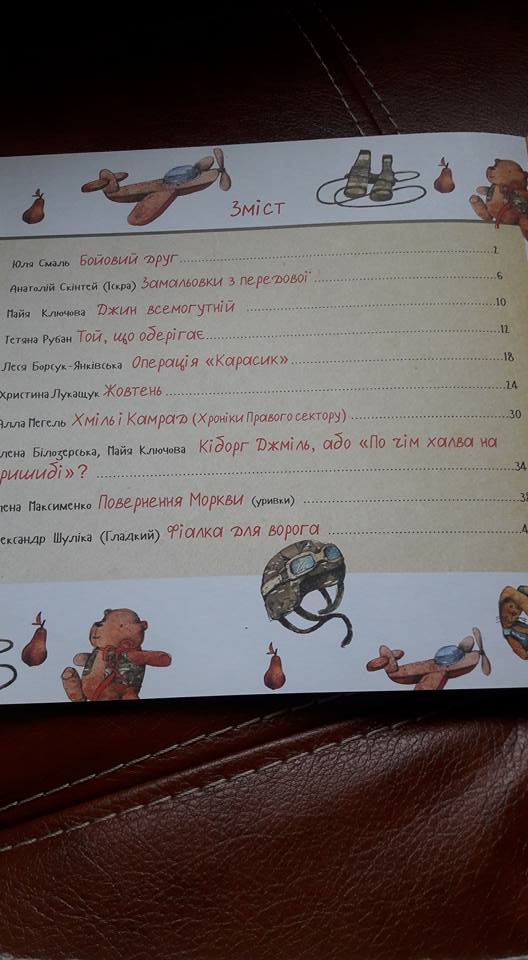 Зміст
Юля Смаль Бойовий друг 2
Анатолій Скінтей (Іскра) Замальовки з передової 6
Майя Ключова Джин всемогутній 10
Тетяна Рубан Той, що оберігає 12
Леся Борсук-Янківська Операція «Карасик» 18
Христина Лукащук Жовтень 24
Алла Мегель Хміль і Камрад (Хроніки Правого сектору) 30
лена Білозерська, Майя Ключова Кіборг Джміль, або «По чім халва на
ришибі»? 34
лена Максименко Повернення Моркви (уривки) 38
ександр Шуліка (Гладкий) Фіалка для ворога 4